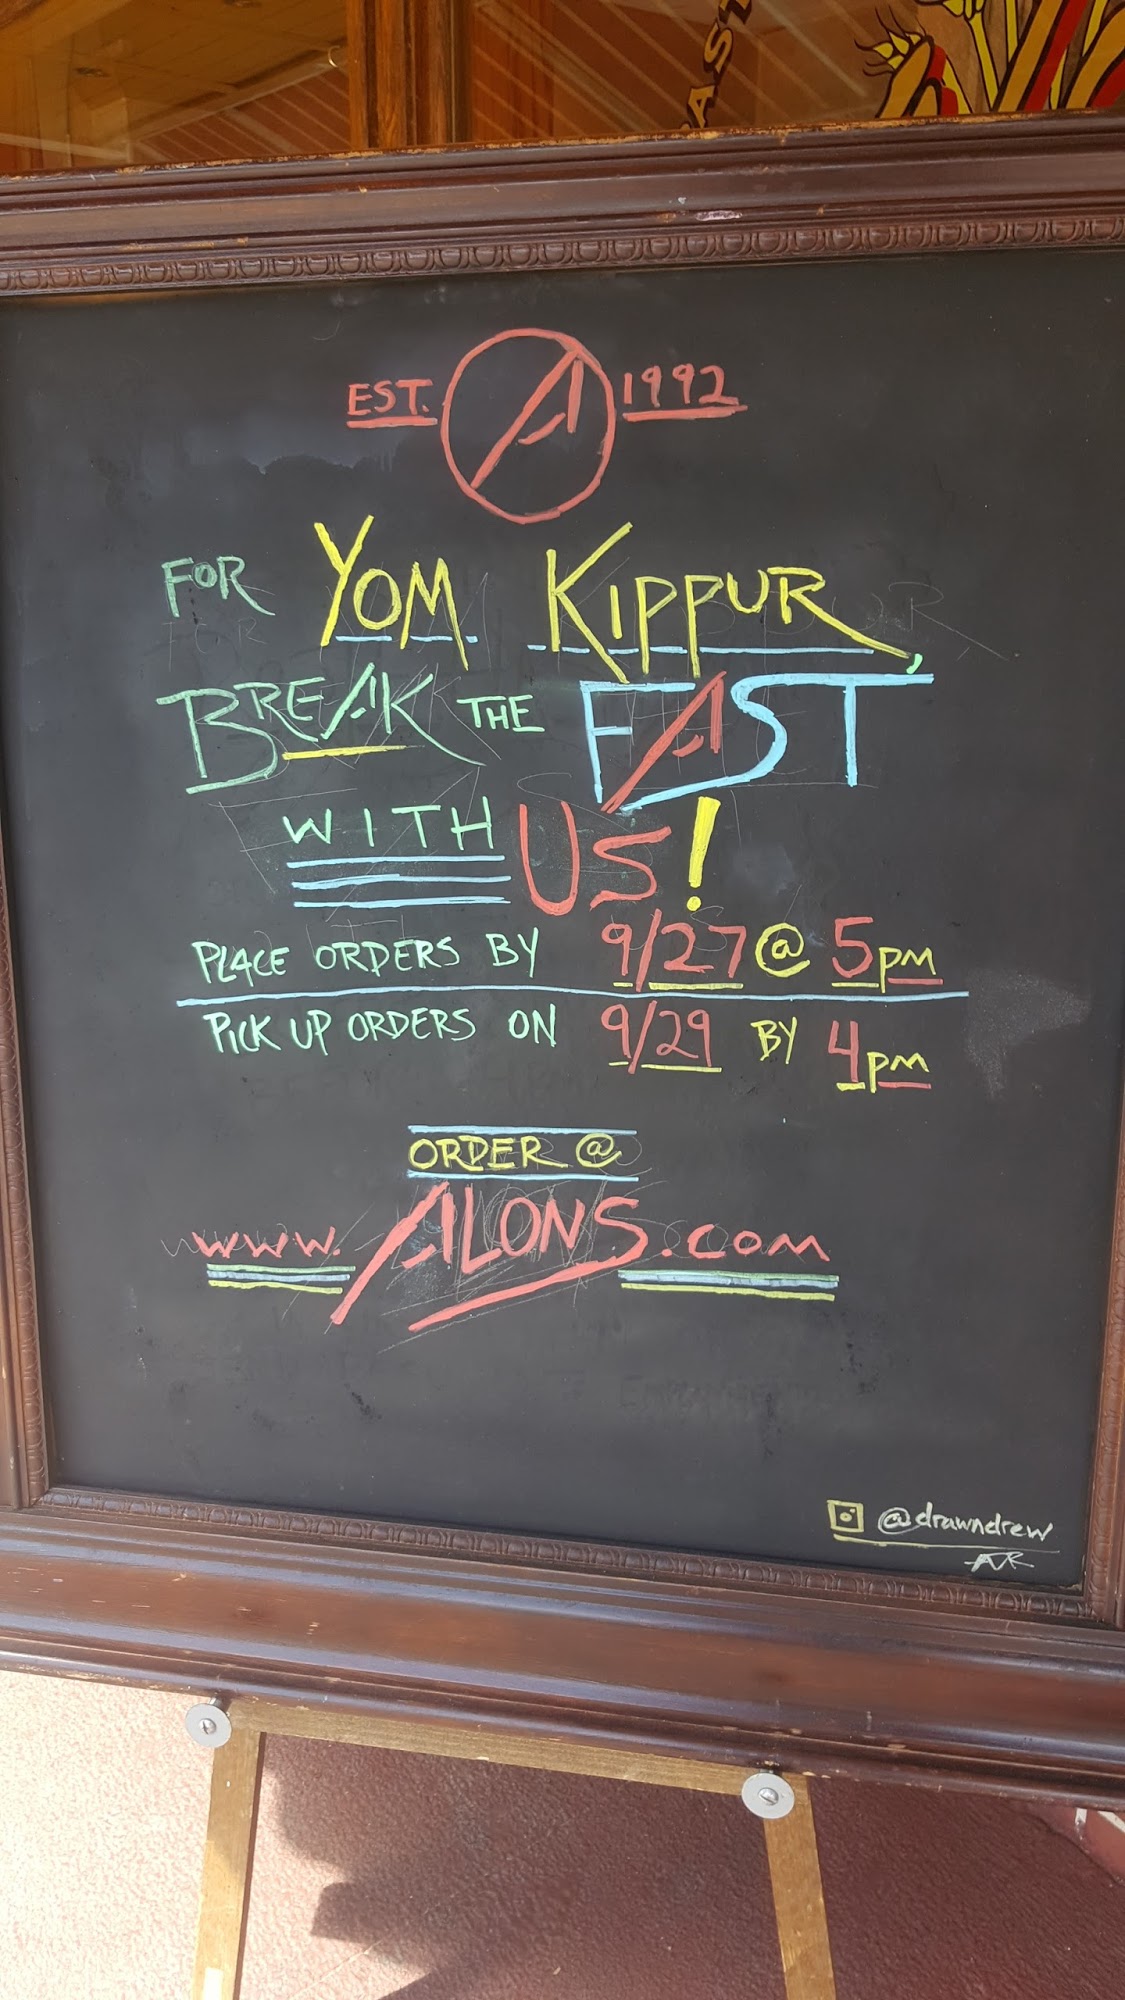 AST
EST. A 1992
FOR YOM KIPPUR,
BREAK THE FAST
WITH US!
PLACE ORDERS BY 9/27 @ 5pm
PICK UP ORDERS ON 9/29 BY 4pm
ORDER @
www.ALONS.com
@drawndrew